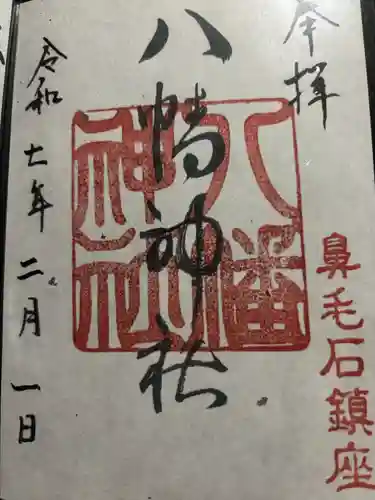 奉拝
鼻毛石鎮座
八幡神社
八幡
神社
令和七年二月一日